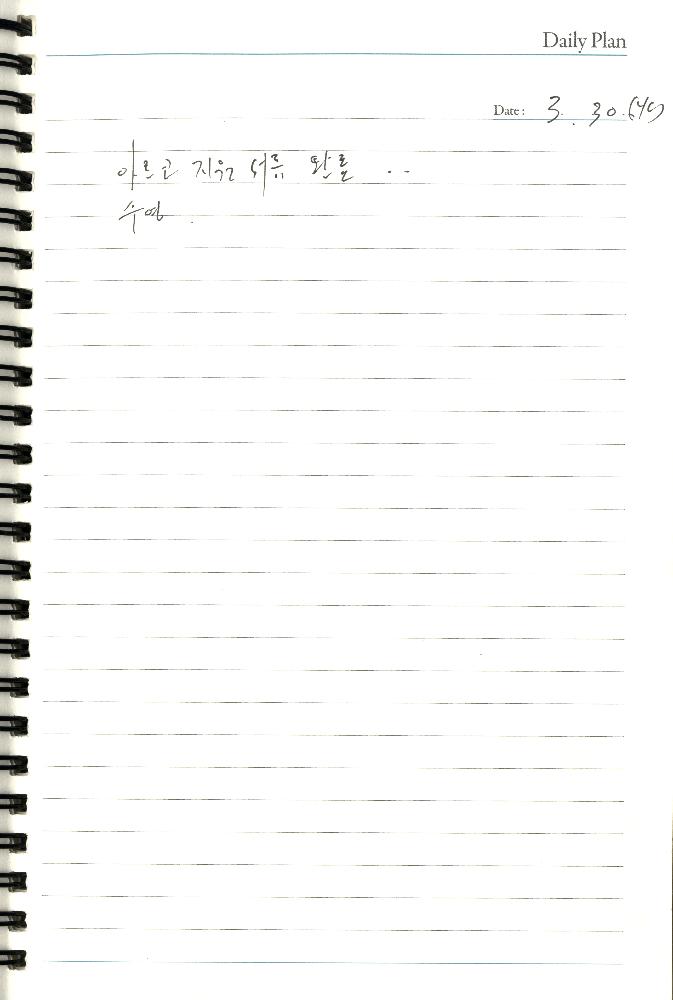 Daily Plan
Date: 3. 30.
아르코 지원 서류 완료 ..
수영.